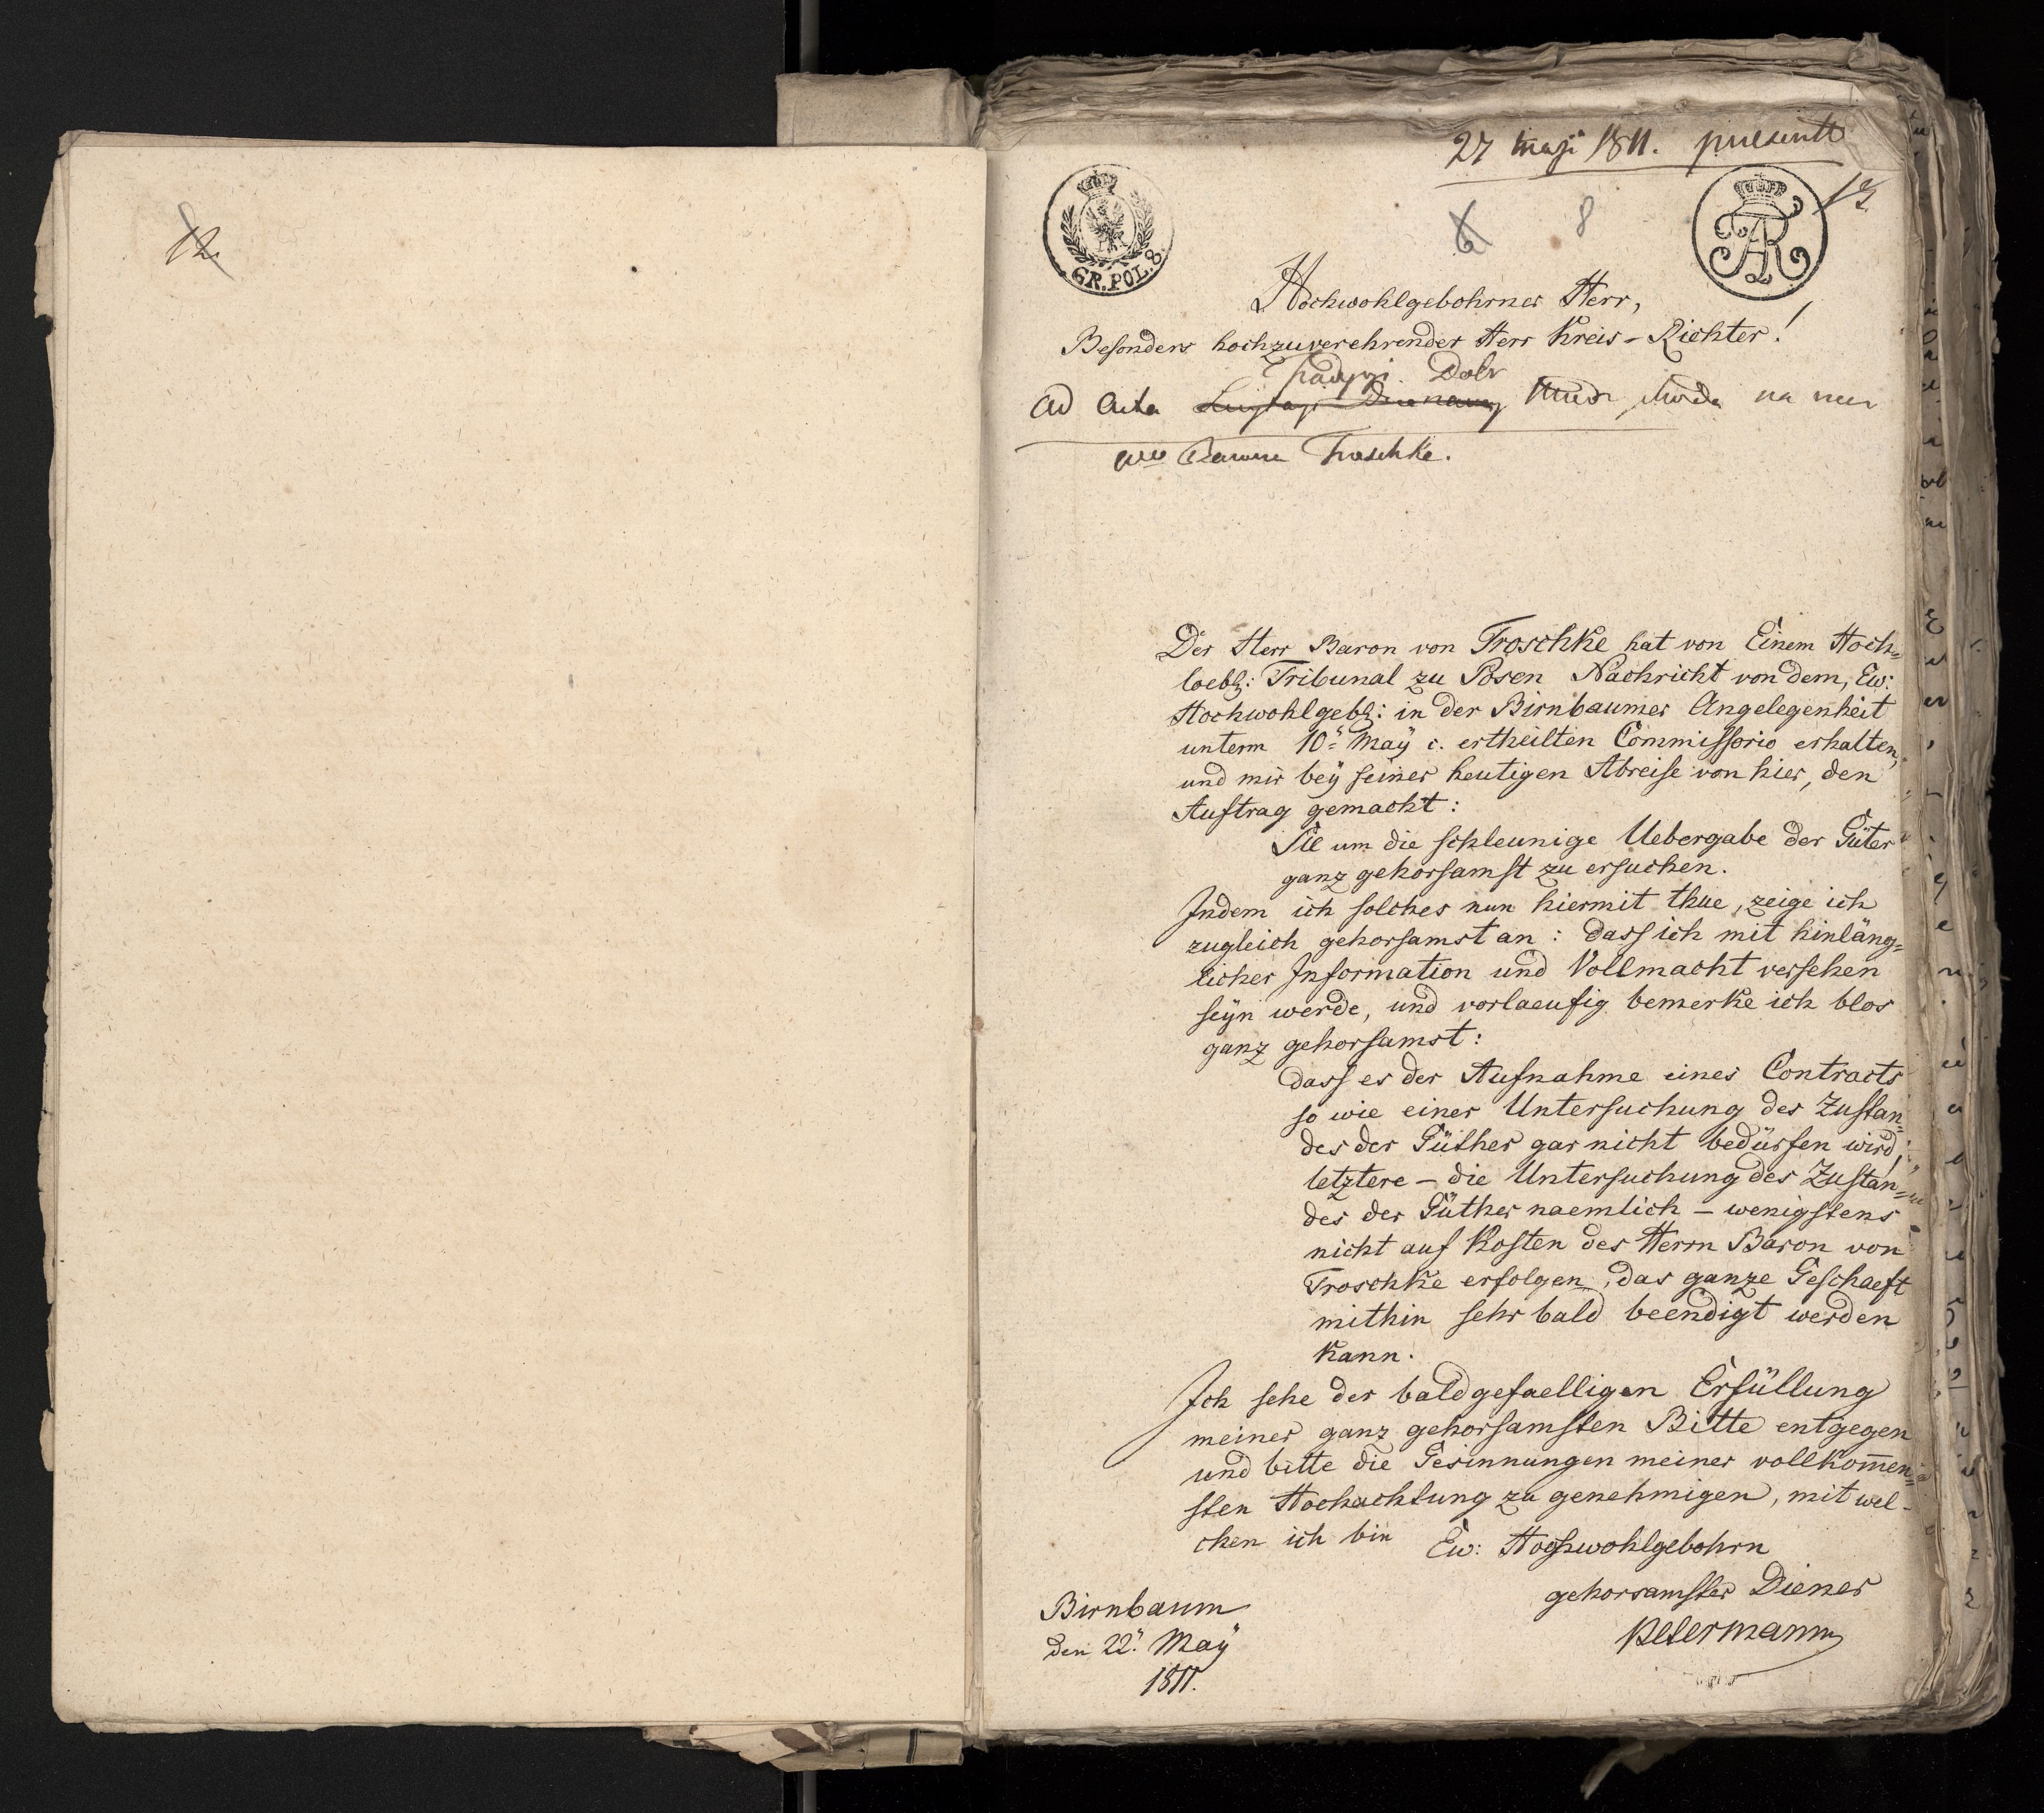 12.
27 maji 1811. praesentt
13
6 8
GR. POL. 8.
FAR
Hochwohlgebohrner Herr,
Besonders hochzuverehrender Herr Kreis-Richter!
Tradycji Dobr
Ad Acta na
Barona Troschke.
Der Herr Baron von Troschke hat von Einem Hoch=
loebl: Tribunal zu Posen Nachricht von dem, Ew:
Hochwohlgebl: in der Birnbaumer Angelegenheit
unterm 10n Maÿ c. ertheilten Commissorio erhalten,
und mir beÿ seiner heutigen Abreise von hier, den
Auftrag gemacht:
Sie um die schleunige Uebergabe der Güter
ganz gehorsamst zu ersuchen.
Indem ich solches nun hiermit thue, zeige ich
zugleich gehorsamst an: dass ich mit hinläng=
licher Information und Vollmacht versehen
seÿn werde, und vorlaeufig bemerke ich blos
ganz gehorsamst:
dass es der Aufnahme eines Contracts
so wie einer Untersuchung des Zustan=
des der Güther gar nicht bedürfen wird,
letztere – die Untersuchung des Zustan=
des der Güther naemlich – wenigstens
nicht auf Kosten des Herrn Baron von
Troschke erfolgen, das ganze Geschaeft
mithin sehr bald beendigt werden
kann.
Ich sehe der baldgefaelligen Erfüllung
meiner ganz gehorsamsten Bitte entgegen
und bitte die Gesinnungen meiner vollkom̅en=
sten Hochachtung zu genehmigen, mit wel-
chen ich bin Ew: Hochwohlgebohrn
gehorsamster Diener
Petermann
Birnbaum
den 22n Maÿ
1811.